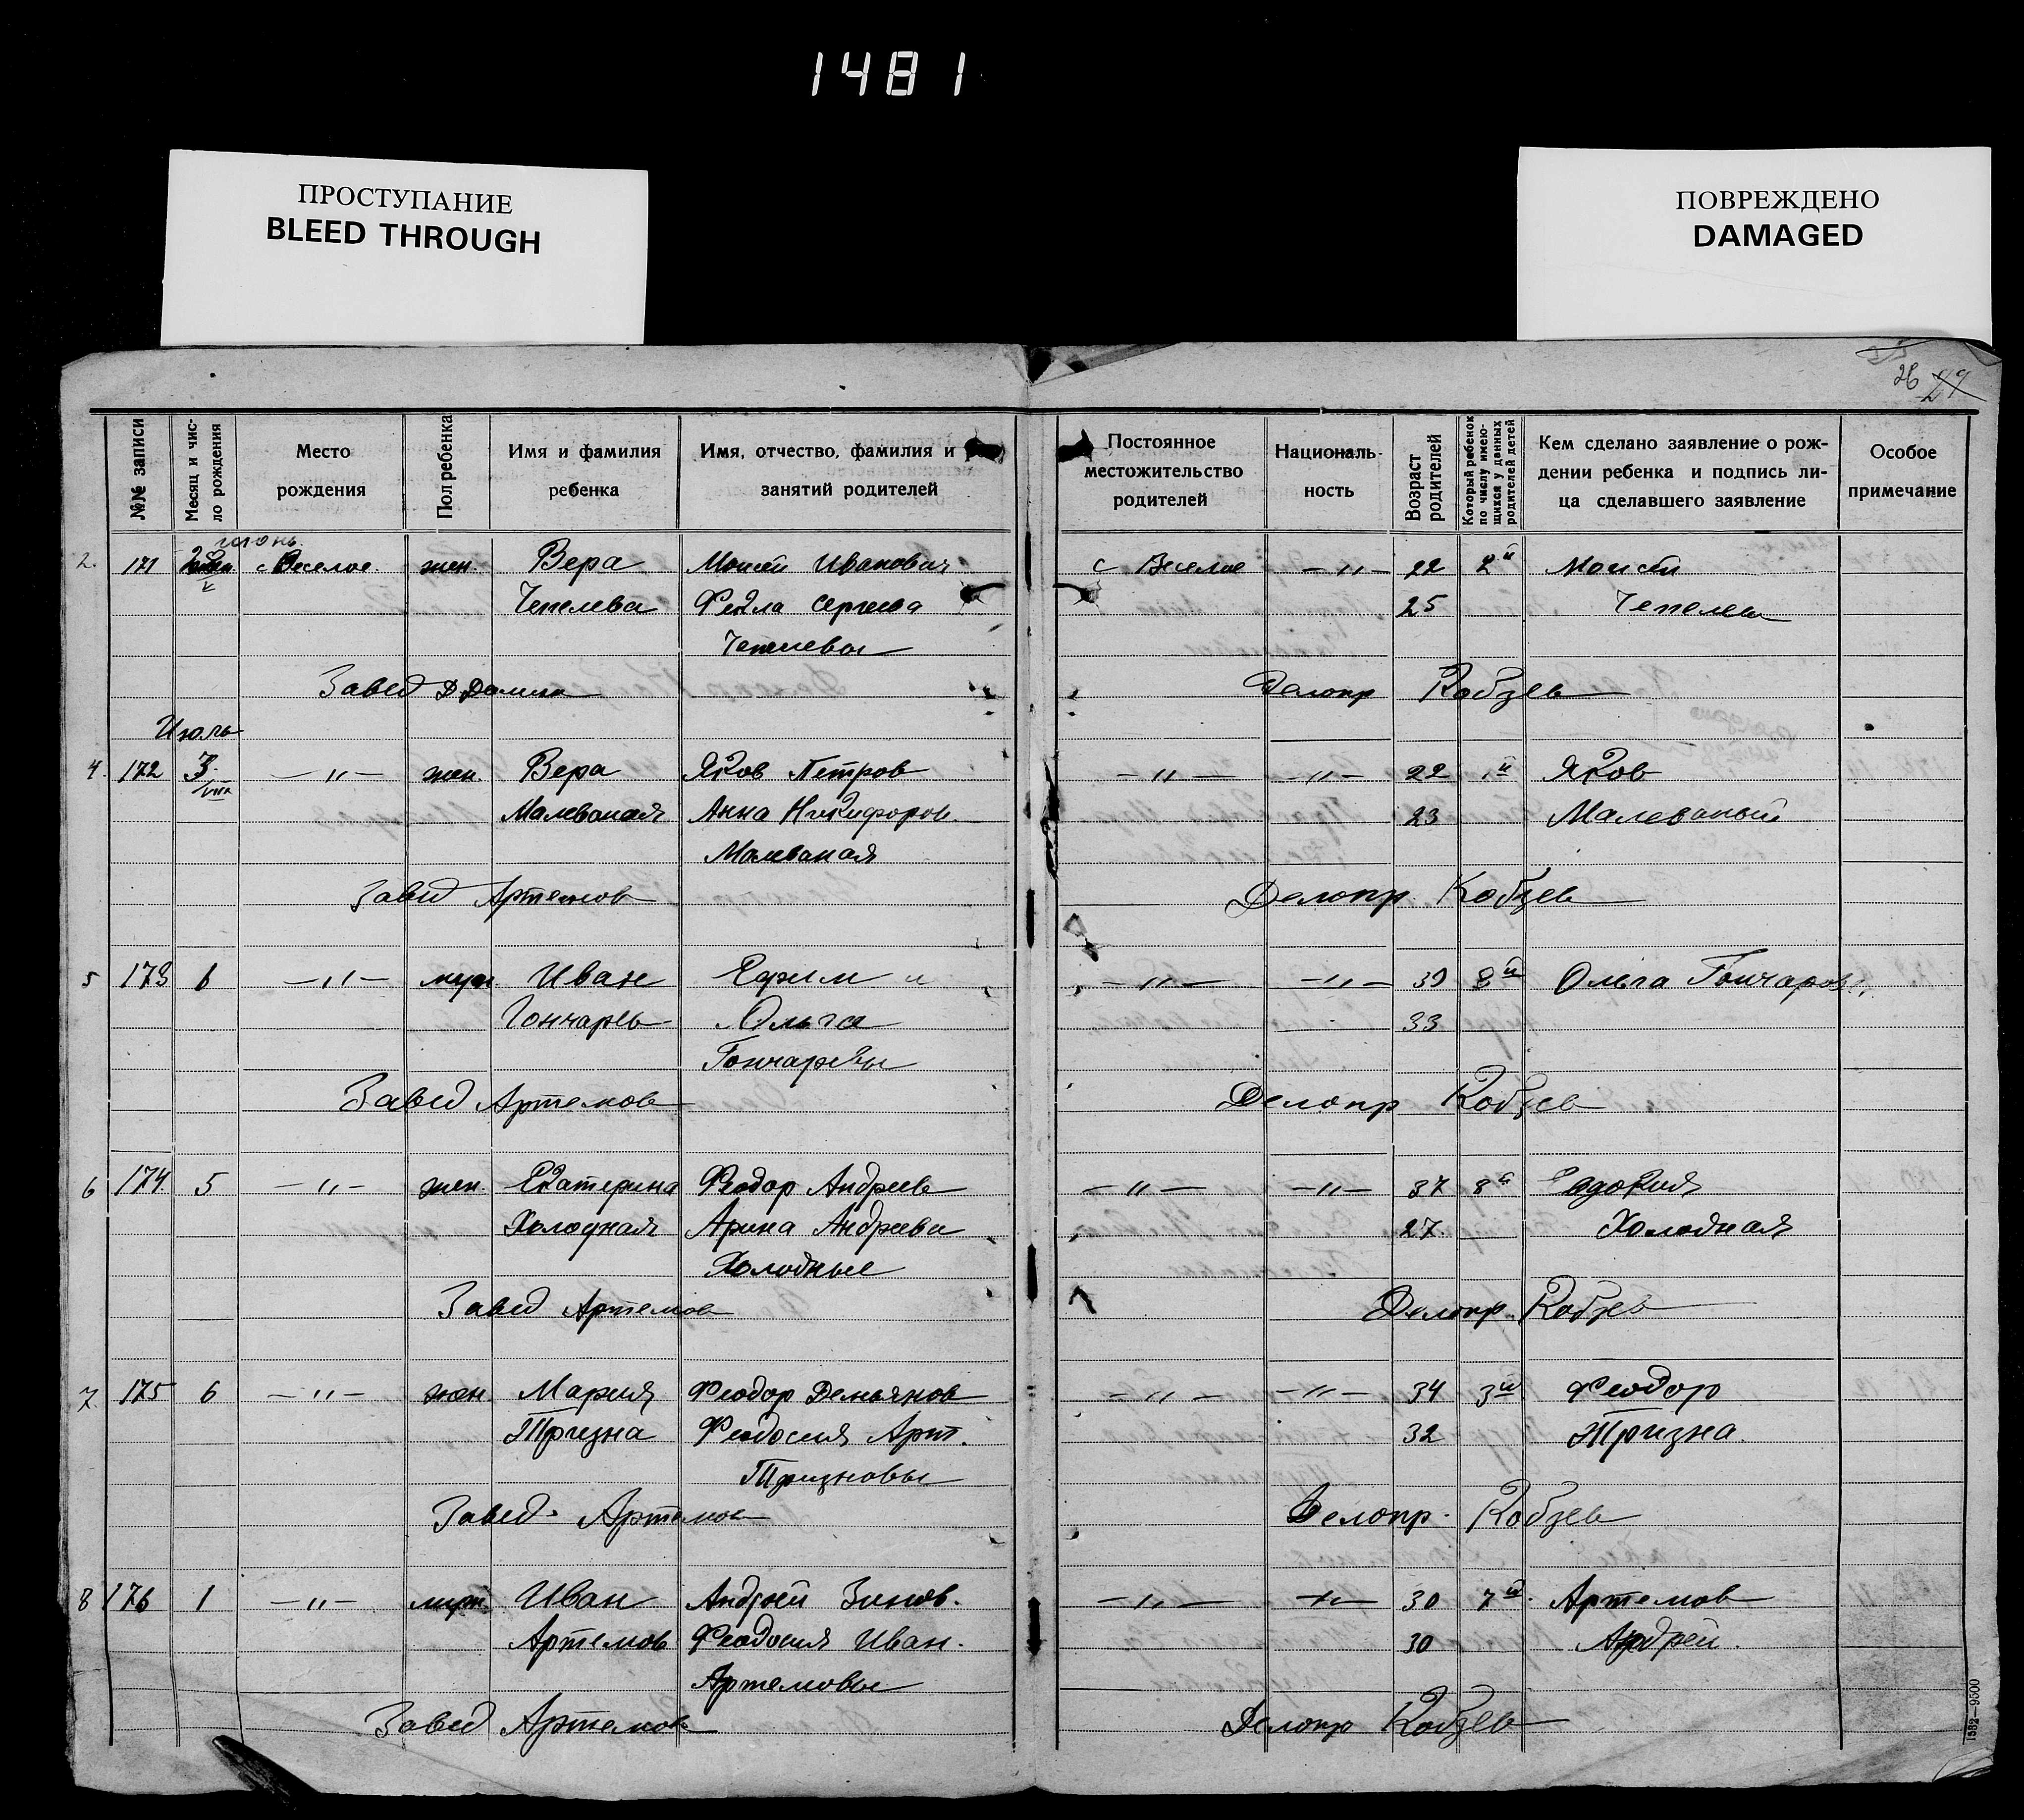 1481
ПРОСТУПАНИЕ
BLEED THROUGH
ПОВРЕЖДЕНО
DAMAGED
26 29
№№ записи
Месяц и чис-
ло рождения
Место
рождения
Пол ребенка
Имя и фамилия
ребенка
Имя, отчество, фамилия и
занятий родителей
Постоянное
местожительство
родителей
Националь-
ность
Возраст
родителей
Который ребенок
по числу имею-
щихся у данных
родителей детей
Кем сделано заявление о рож-
дении ребенка и подпись ли-
ца сделавшего заявление
Особое
примечание
июнь.
2. 171 с Веселое жен. Вера Моисей Иванович с Веселое —"— 22 2й Моисей
Чепелева Фекла Сергеева 25 Чепелев
Чепелевы
Завед Делопр Кобзев
Июль
4. 172 3/VII —"— жен. Вера Яков Петров —"— —"— 22 1й Яков
Малеваная Анна Никифоров. 23 Малеваный
Малеваная
Завед Артемов Делопр. Кобзев
5 173 1 —"— муж. Иван Ефим и —"— —"— 39 8й Ольга Гончарова
Гончарев Ольга 33
Гончаревы
Завед Артемов Делопр Кобзев
6 174 5 —"— жен. Екатерина Феодор Андреев —"— —"— 37 8й
Холодная Арина Андреева 27 Холодная
Холодные
Завед Артемов Делопр. Кобзев
7 175 6 —"— жен. Мария Феодор Демьянов —"— —"— 34 3й Феодор
Тризна Феодосия Арт. 32 Тризна.
Тризновы
Завед. Артемов Делопр. Кобзев
8 176 1 —"— муж. Иван Андрей Зинов. —"— —"— 30 7й. Артемов
Артемов Феодосия Иван. 30 Андрей.
Артемовы
Завед Артемов Делопр Кобзев
1582—9500